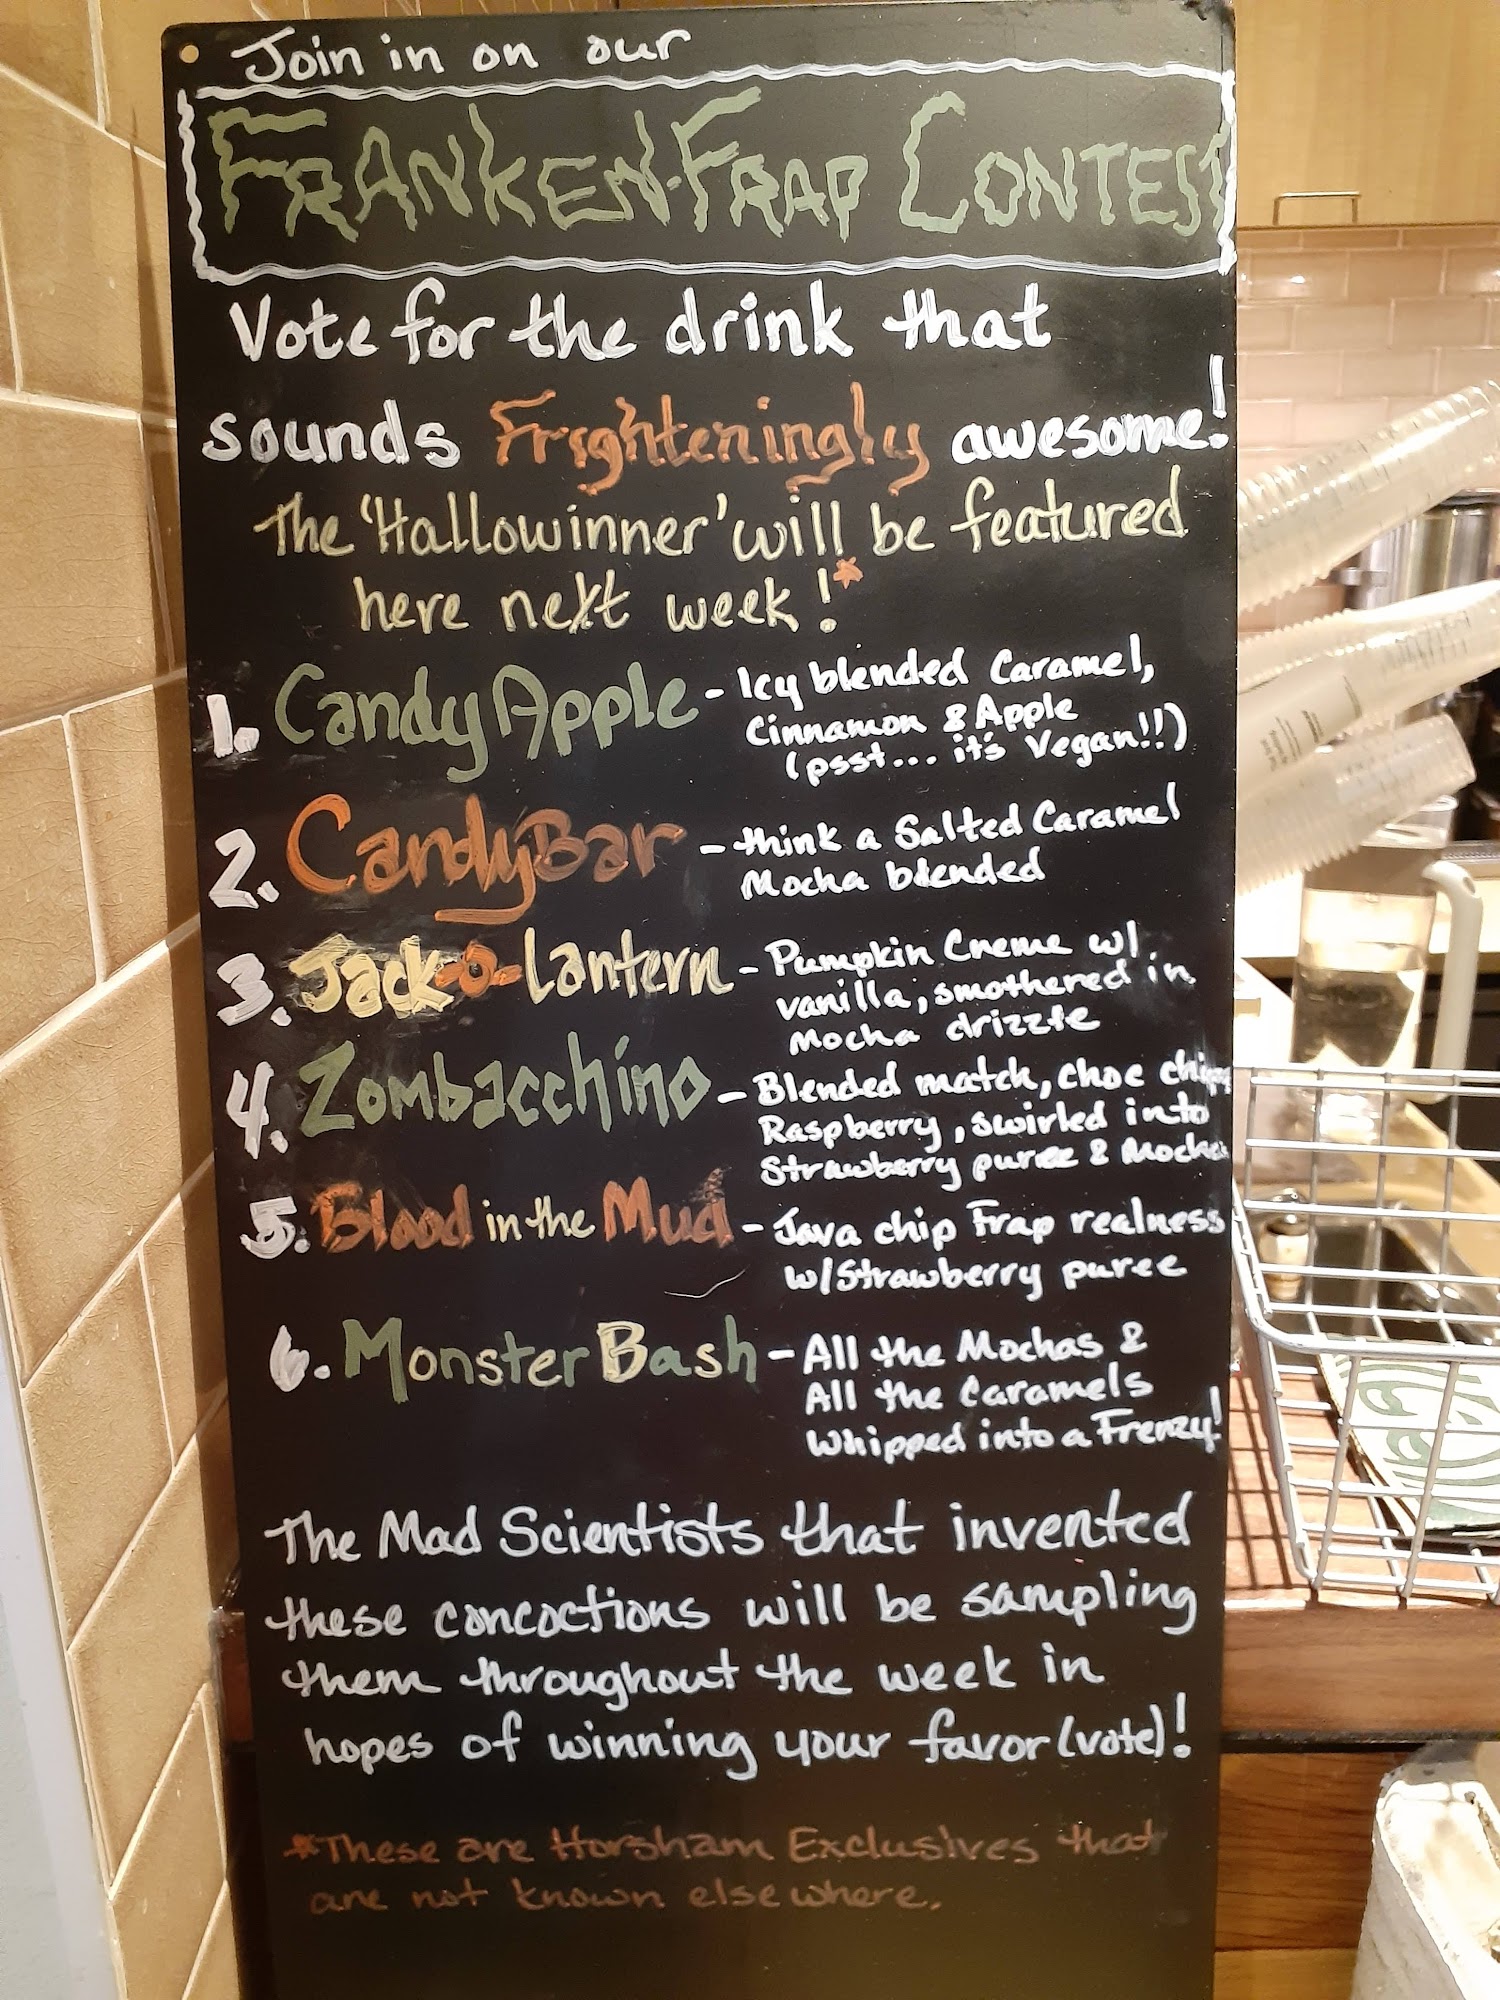 Join in on our
FRANKEN-FRAP CONTEST
Vote for the drink that
sounds Frighteningly awesome!
The 'Hallowinner' will be featured
here next week!*
1. Candy Apple - Icy blended Caramel,
Cinnamon & Apple
(psst... it's Vegan!!)
2. Candy Bar - think a Salted Caramel
Mocha blended
3. Jack-o-Lantern - Pumpkin Creme w/
vanilla, smothered in
Mocha drizzle
4. Zombacchino - Blended match, choc chips
Raspberry, swirled into
Strawberry puree & Mocha
5. Blood in the Mud - Java chip Frap realness
w/Strawberry puree
6. Monster Bash - All the Mochas &
All the Caramels
Whipped into a Frenzy!
The Mad Scientists that invented
these concoctions will be sampling
them throughout the week in
hopes of winning your favor (vote)!
*These are Horsham Exclusives that
are not known elsewhere.